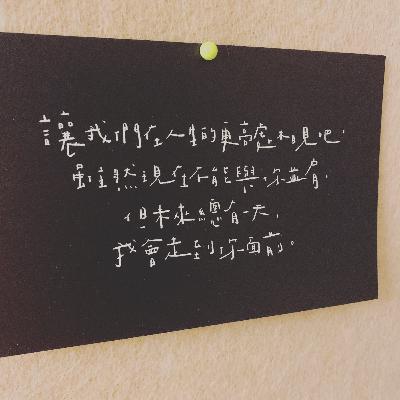 讓我們在人生的更高處相見吧.
雖然現在不能與你並肩,
但未來總有一天,
我會走到你面前。